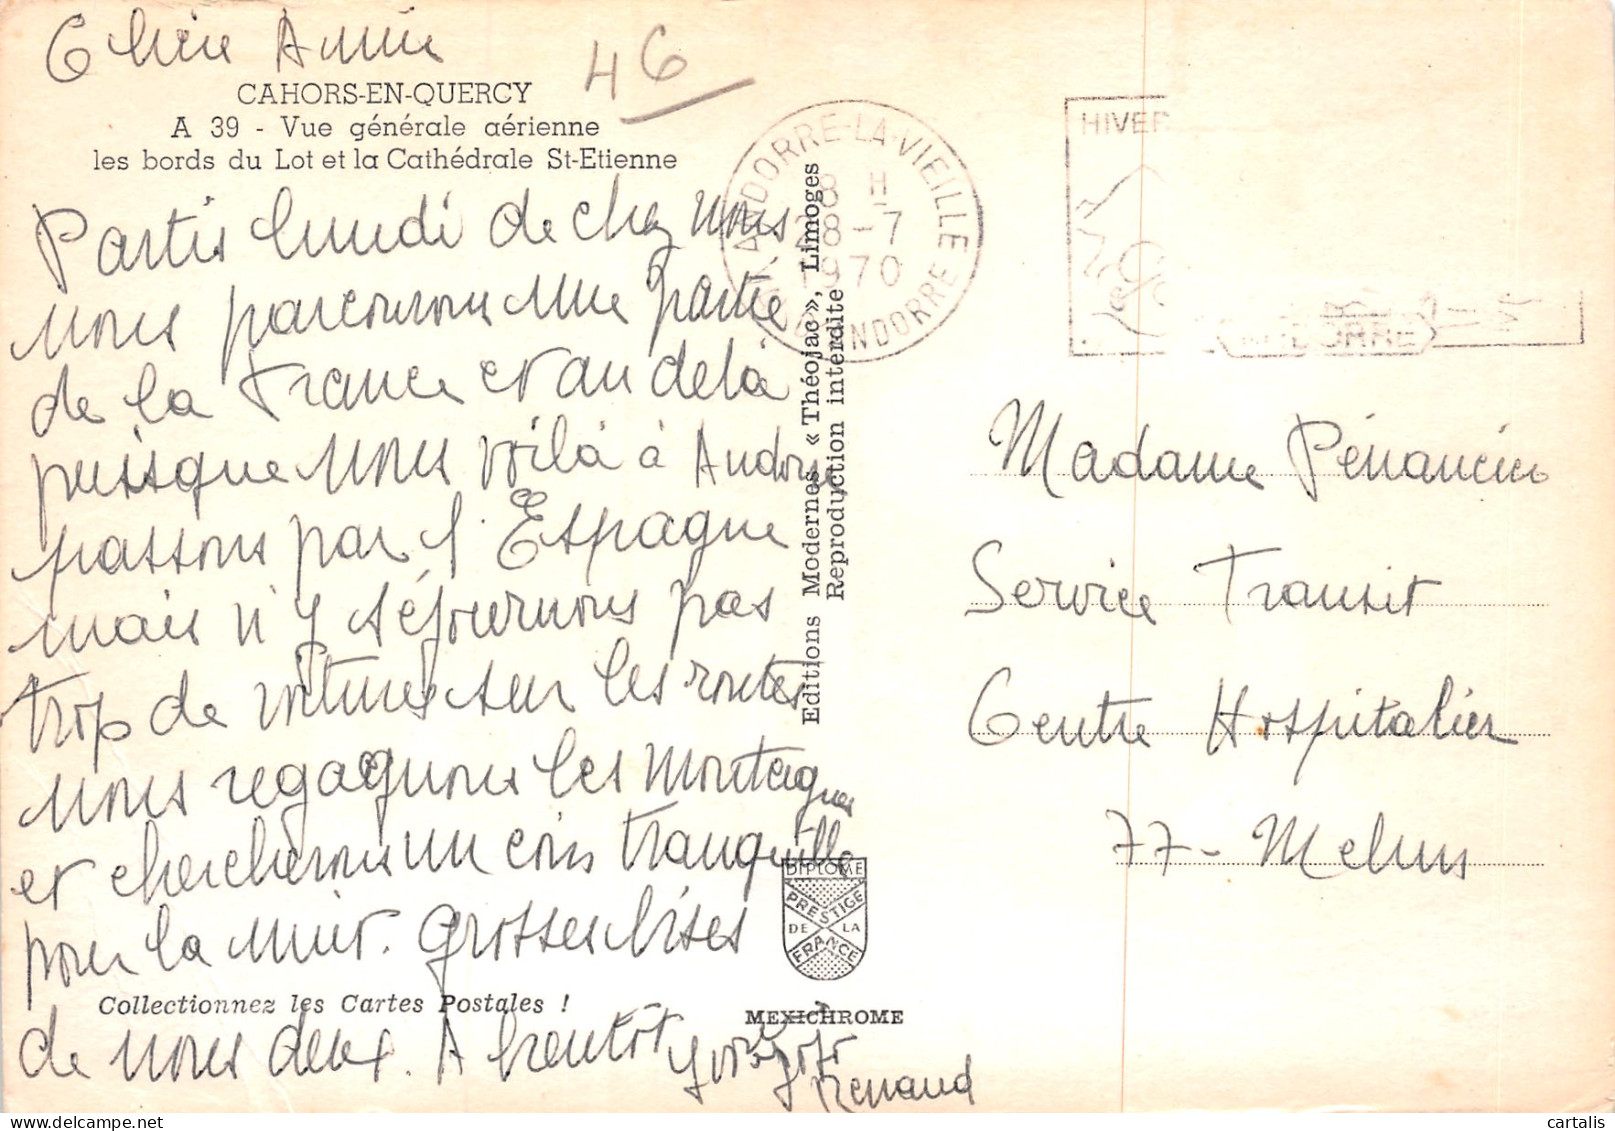 Chère Amie
46
CAHORS-EN-QUERCY
A 39 - Vue générale aérienne
les bords du Lot et la Cathédrale St-Etienne
Partis lundi de chez nous
nous parcourons une partie
de la France et au delà
puisque nous voilà à Andorre
passons par l'Espagne
mais n'y séjournons pas
trop de voitures sur les routes
nous regagnons les montagnes
et chercherons un coin tranquille
pour la nuit. Grosses bises
de nous deux. A bientôt
Renaud
Collectionnez les Cartes Postales !
Editions Modernes « Théojac », Limoges
Reproduction interdite
DIPLOME
PRESTIGE
DE LA
FRANCE
MEXICHROME
ANDORRE-LA-VIEILLE
18 H
28-7
1970
ANDORRE
HIVER
ANDORRE
Madame
Service Transit
Centre Hospitalier
77- Melun
cartalis